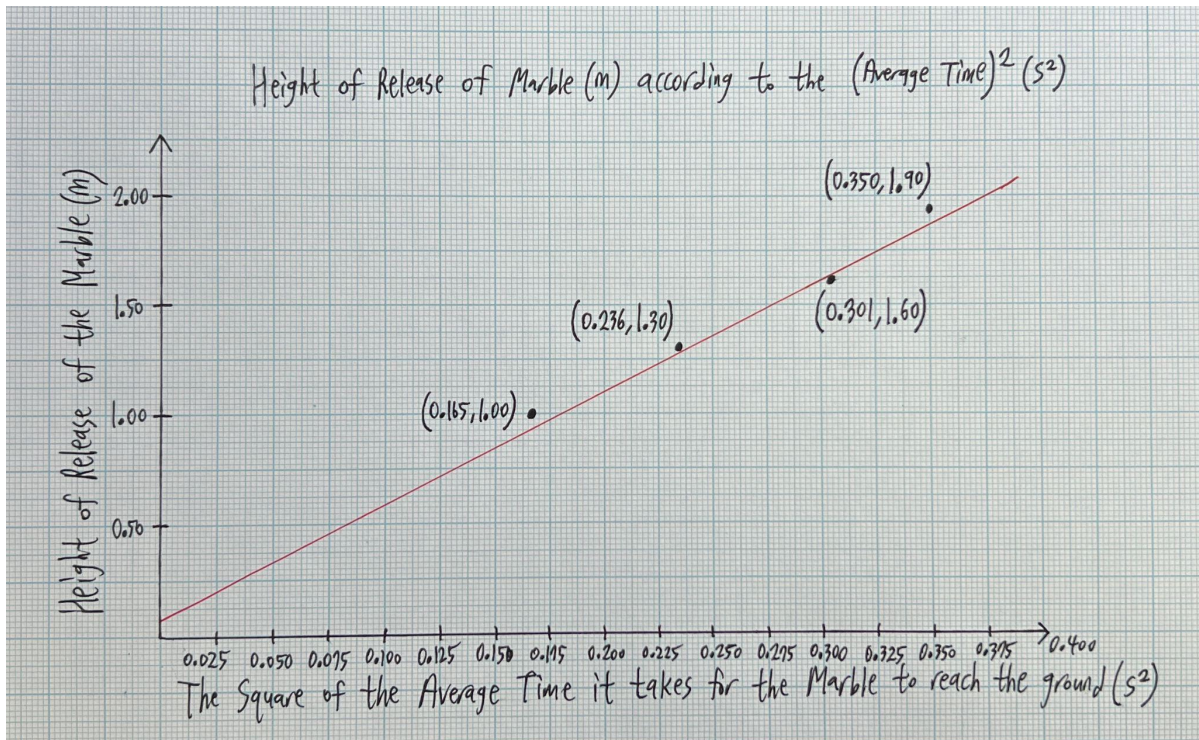 Height of Release of Marble (m) according to the (Average Time)² (s²)
Height of Release of the Marble (m)
2.00
1.50
1.00
0.50
(0.350, 1.90)
(0.301, 1.60)
(0.236, 1.30)
(0.165, 1.00)
0.025 0.050 0.075 0.100 0.125 0.150 0.175 0.200 0.225 0.250 0.275 0.300 0.325 0.350 0.375 0.400
The Square of the Average Time it takes for the Marble to reach the ground (s²)